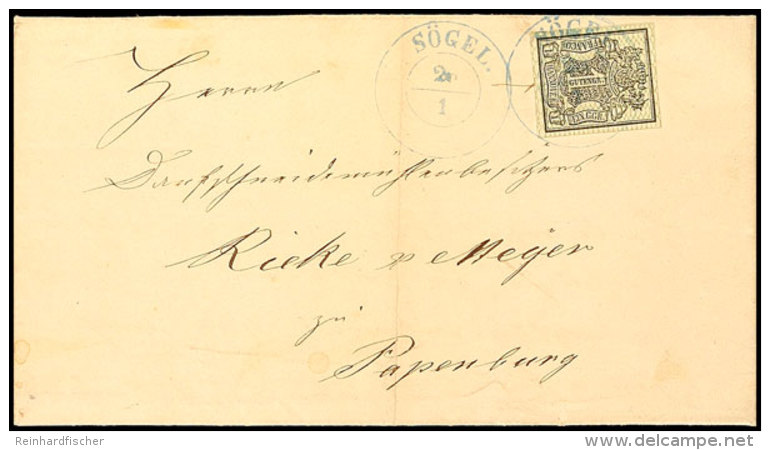 SÖGEL.
2
1
SÖGEL
FRANCO
1
GUTENGR.
HANNOVER
EIN GGR.
Herrn
Dampfschneidemühlenbesitzers
Rieke v Meyer
zu
Papenburg
Reinhardfischer
www.delcampe.net